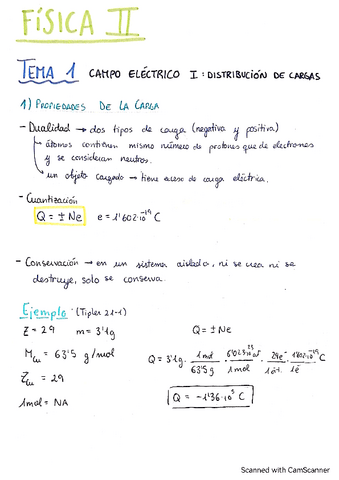 FÍSICA II
TEMA 1 CAMPO ELÉCTRICO I : DISTRIBUCIÓN DE CARGAS
1) PROPIEDADES DE LA CARGA
- Dualidad → dos tipos de carga (negativa y positiva)
↳ átomos contienen mismo número de protones que de electrones
y se consideran neutros.
↳ un objeto cargado → tiene exceso de carga eléctrica.
- Cuantización
Q = ± Ne e = 1'602·10⁻¹⁹ C
- Conservación → en un sistema aislado, ni se crea ni se
destruye, solo se conserva.
Ejemplo (Tipler 21-1)
Z = 29 m = 3'1g Q = ± Ne
M Cu = 63'5 g/mol Q = 3'1g · 1mol / 63'5g · 6'023·10²³ at / 1mol · 29e⁻ / 1át. · 1'602·10⁻¹⁹ C / 1e⁻
Z Cu = 29
1mol = NA Q = -1'36·10⁵ C
Scanned with CamScanner